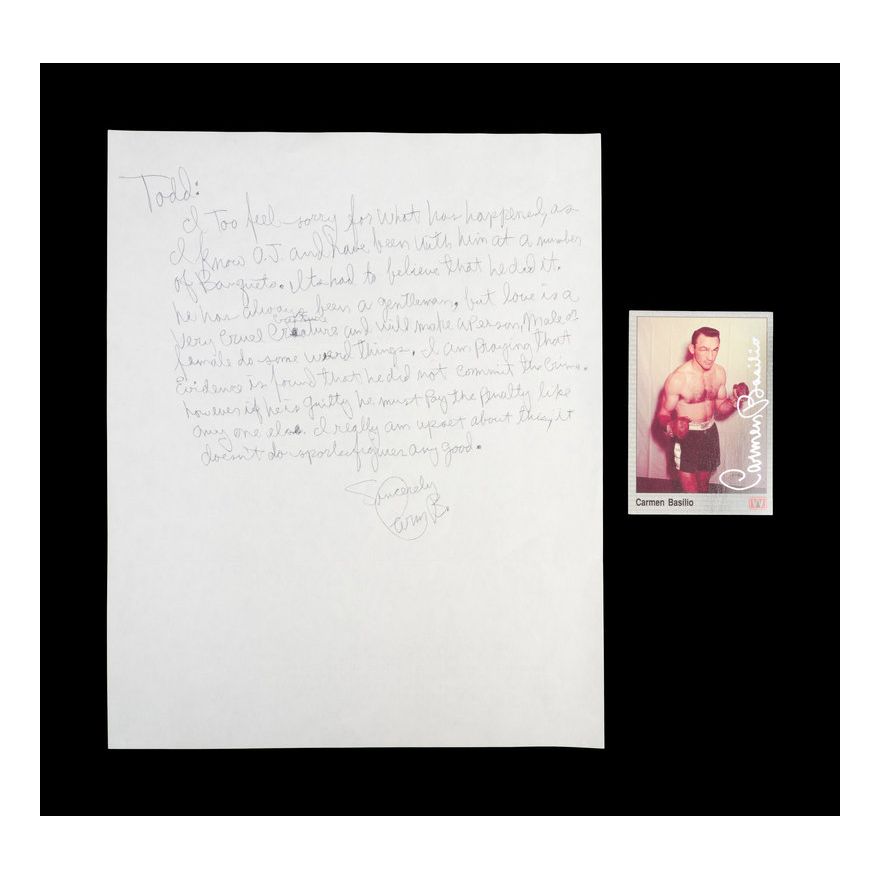 Todd:
I Too feel sorry for what has happened, as
I know O.J. and have been with him at a number
of Banquets. Its had to believe that he did it.
he has always been a gentleman, but love is a
creature
very Cruel and will make a Person, Male or
female do some weird things. I am Praying that
Evidence is found that he did not commit the Crime.
however if he is guilty he must Pay the Penalty like
any one else. I really am upset about this, it
doesn't do sports figures any good.
Sincerely
Carm B.
Carmen Basilio
Carmen Basilio